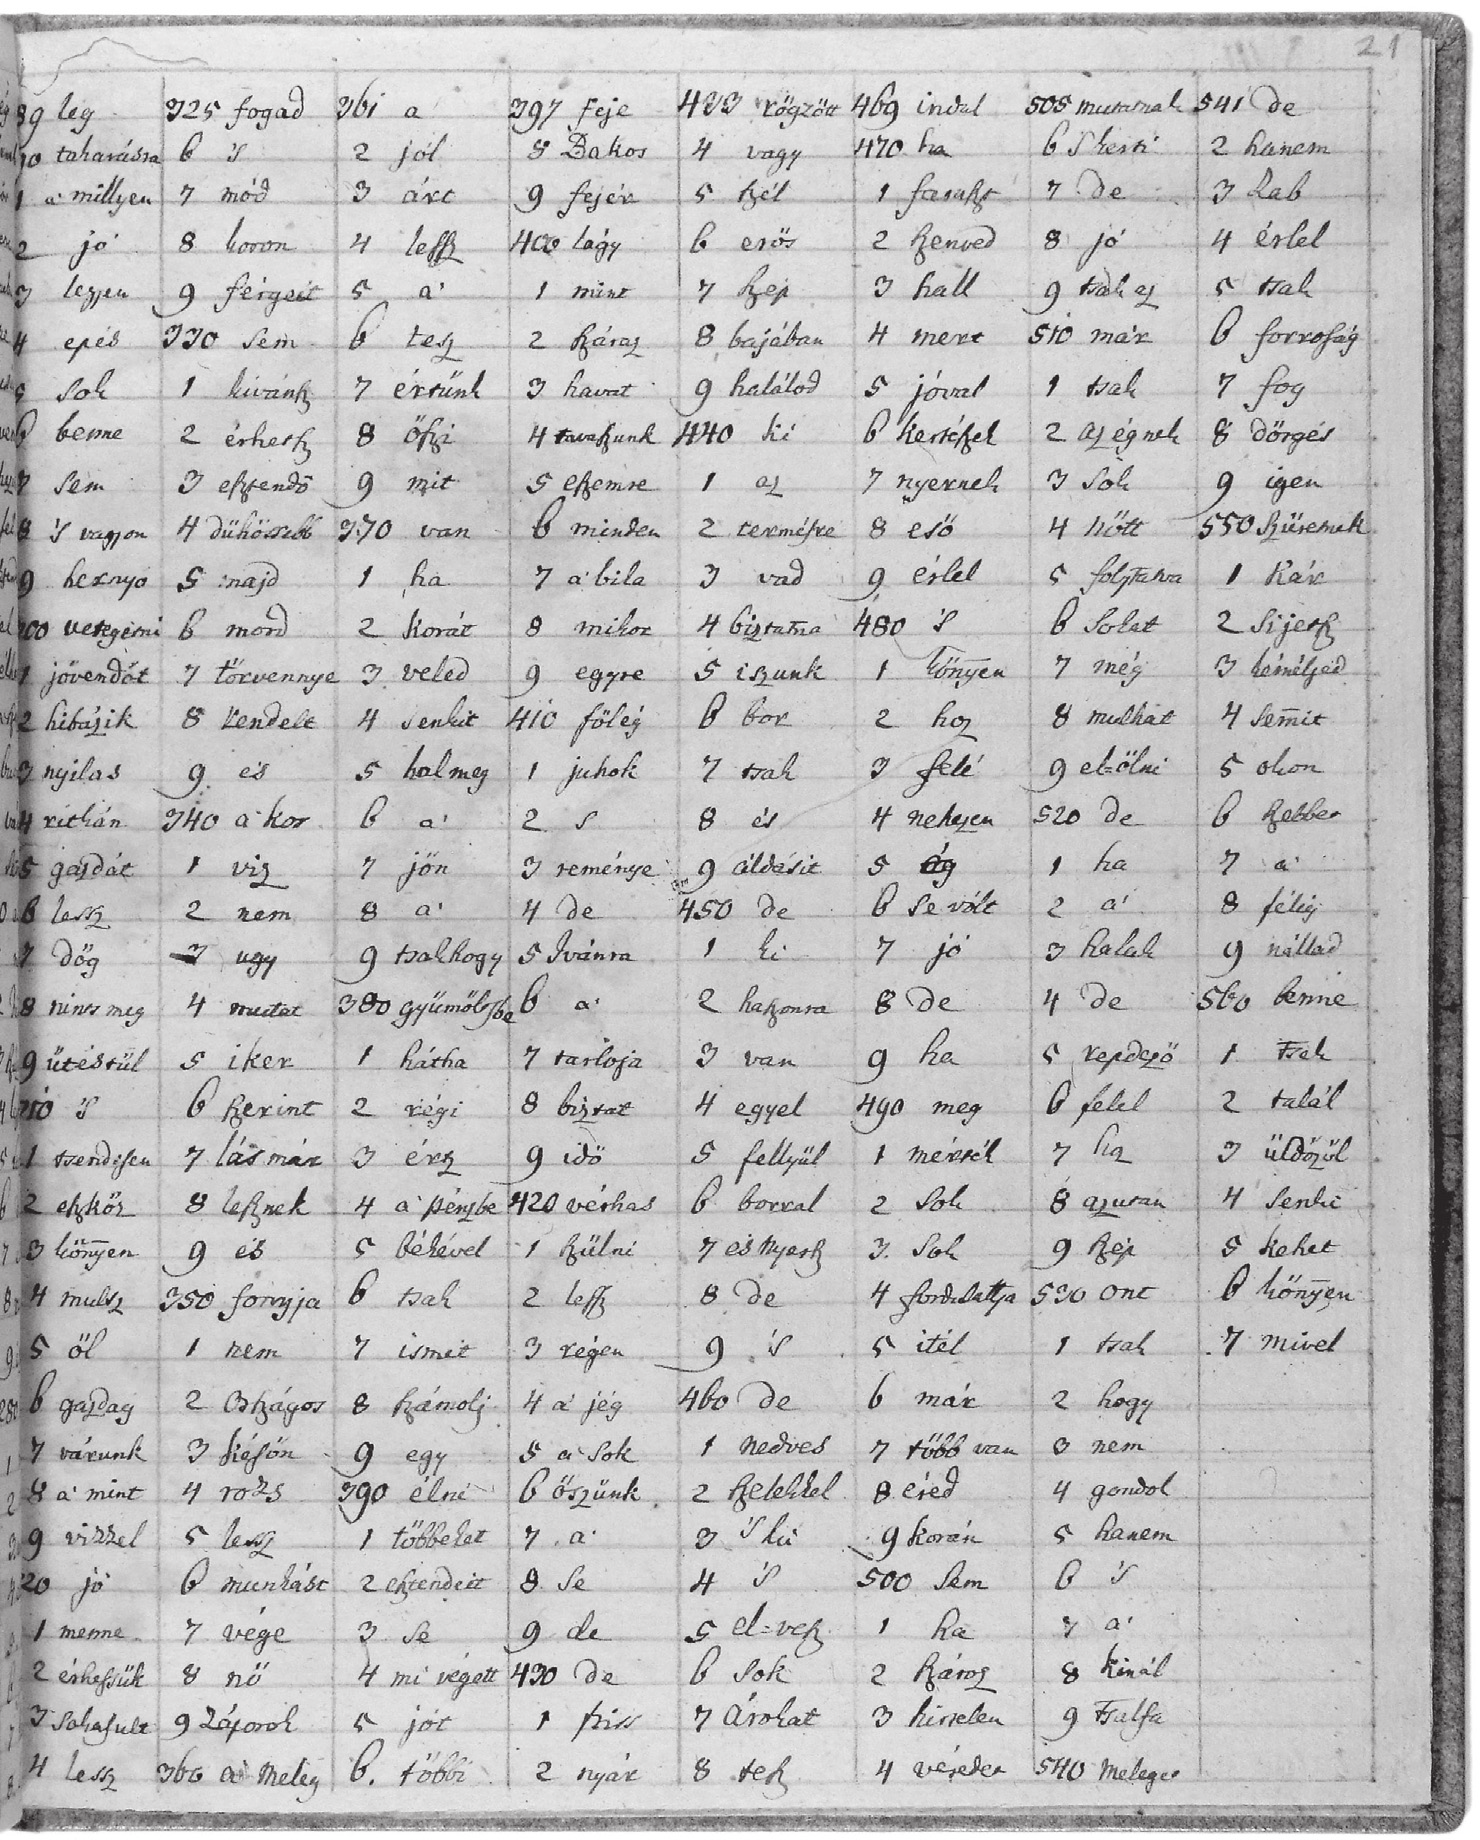 21
89 leg 325 fogad 361 a 397 feje 433 rögzött 469 indul 505 mutatnak 541 de
90 takarásra 6 's 2 jól 8 Bakos 4 vagy 470 ha 6 's kerti 2 hanem
1 a' millyen 7 mód 3 árt 9 fejér 5 szél 1 faraszt 7 de 3 Rab
2 jó 8 koron 4 lessz 400 lágy 6 erös 2 szenved 8 jó 4 érlel
3 legyen 9 férgeit 5 a' 1 mint 7 szép 3 hall 9 tsak az 5 tsak
4 epés 330 sem 6 tesz 2 száraz 8 bajában 4 mert 510 már 6 forróság
5 sok 1 kivánsz 7 értünk 3 havat 9 halálod 5 jóval 1 tsak 7 fog
6 benne 2 érhetsz 8 öszi 4 tavaszunk 440 ki 6 kertészek 2 az égnek 8 dörgés
7 sem 3 esztendö 9 mit 5 eszemre 1 az 7 nyernek 3 sok 9 igen
8 's vagyon 4 dühössebb 370 van 6 minden 2 termésre 8 esö 4 nött 550 szüretnek
9 hernyo 5 majd 1 ha 7 a' bila 3 vad 9 érlel 5 folytatva 1 kár
200 vetegetni 6 mord 2 korát 8 mikor 4 biztatna 480 's 6 sokat 2 sijetsz
1 jövendöt 7 törvennye 3 veled 9 egyre 5 iszunk 1 könnyen 7 még 3 reméljed
2 hibázik 8 rendelt 4 senkit 410 föleg 6 bor 2 hoz 8 mulhat 4 semmit
3 nyilas 9 és 5 hal meg 1 juhok 7 tsak 3 felé 9 el=ölni 5 okon
4 ritkán 340 a' kor 6 a' 2 s 8 és 4 nehezen 520 de 6 szebber
5 gazdát 1 viz 7 jön 3 reménye 9 áldásit 5 ág 1 ha 7 a'
6 lessz 2 nem 8 a' 4 de 450 de 6 se vólt 2 a' 8 félig
7 dög 3 ugy 9 tsak hogy 5 Ivánra 1 ki 7 jó 3 halak 9 nállad
8 nints meg 4 mutat 380 gyümöltsbe 6 a' 2 haszonra 8 de 4 de 560 benne
9 ütéstül 5 iker 1 hátha 7 tarloja 3 van 9 ha 5 repdezö 1 tsak
210 's 6 szerint 2 régi 8 biztat 4 egyel 490 meg 6 felel 2 talál
1 tsendesen 7 lás már 3 érsz 9 idö 5 fellyül 1 mértél 7 ha 3 üldözöl
2 eszköz 8 lesznek 4 a' pénzbe 420 vérhas 6 borral 2 sok 8 azután 4 senki
3 könnyen 9 és 5 békével 1 szülni 7 és nyersz 3 sok 9 szép 5 kehet
4 mulsz 350 fonyja 6 tsak 2 lessz 8 de 4 fordulattya 530 ont 6 könnyen
5 öl 1 nem 7 ismét 3 régen 9 's 5 itél 1 tsak 7 mivel
6 gazdag 2 Országos 8 számolj 4 a' jég 460 de 6 már 2 hogy
7 várunk 3 késön 9 egy 5 a' sok 1 nedves 7 több van 3 nem
8 a' mint 4 rozs 390 élni 6 öszünk 2 szelekkel 8 éred 4 gondol
9 vizzel 5 lessz 1 többeket 7 a' 3 's ki 9 korán 5 hanem
220 jó 6 munkást 2 esztendeit 8 se 4 's 500 sem 6 's
1 menne 7 vége 3 se 9 de 5 el=vesz 1 ha 7 a'
2 érhessük 8 nö 4 mi végett 430 de 6 sok 2 száraz 8 kinál
3 sokasult 9 záporok 5 jót 1 friss 7 Árokat 3 hirtelen 9 tsalfa
4 lessz 360 a' meleg 6 többi 2 nyár 8 tesz 4 véredet 540 meleget